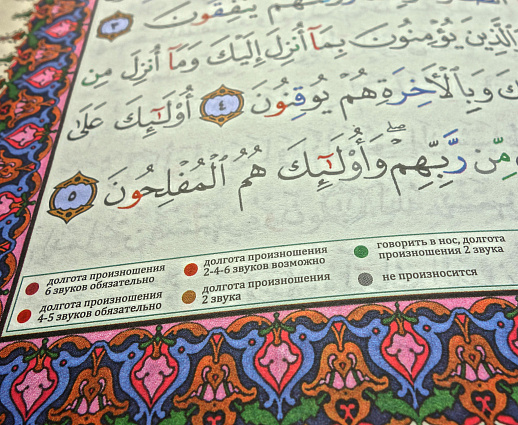 يُنفِقُونَ ٣
وَالَّذِينَ يُؤْمِنُونَ بِمَآ أُنزِلَ إِلَيْكَ وَمَآ أُنزِلَ مِن
وَبِالْآخِرَةِ هُمْ يُوقِنُونَ ٤ أُوْلَٰٓئِكَ عَلَىٰ
مِّن رَّبِّهِمْ ۖ وَأُوْلَٰٓئِكَ هُمُ الْمُفْلِحُونَ ٥
долгота произношения
6 звуков обязательно
долгота произношения
4-5 звуков обязательно
долгота произношения
2-4-6 звуков возможно
долгота произношения
2 звука
говорить в нос, долгота
произношения 2 звука
не произносится